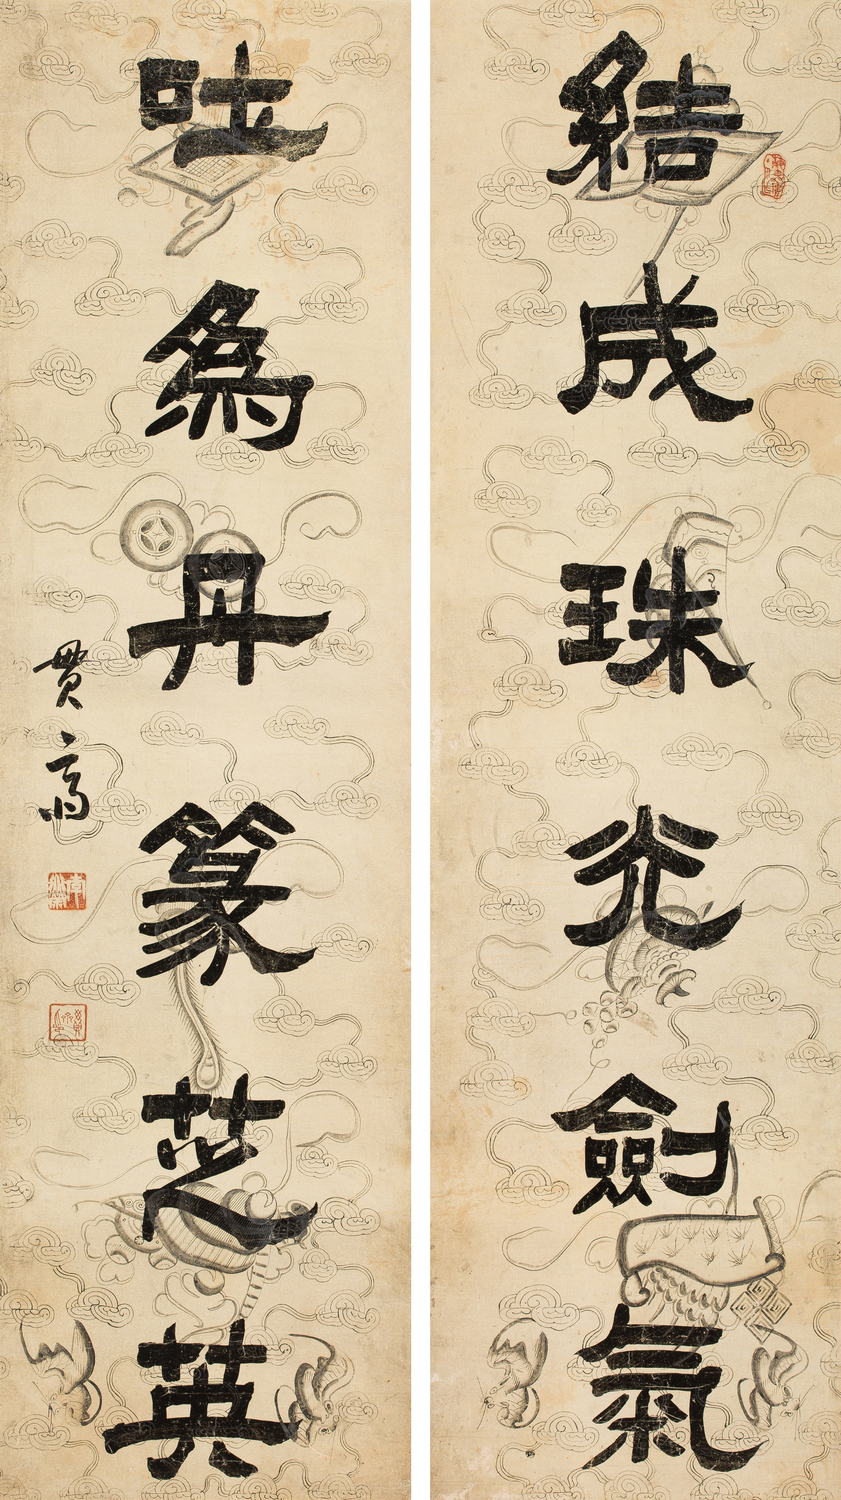 結成珠光劍氣
吐爲丹篆芝英
貫齋